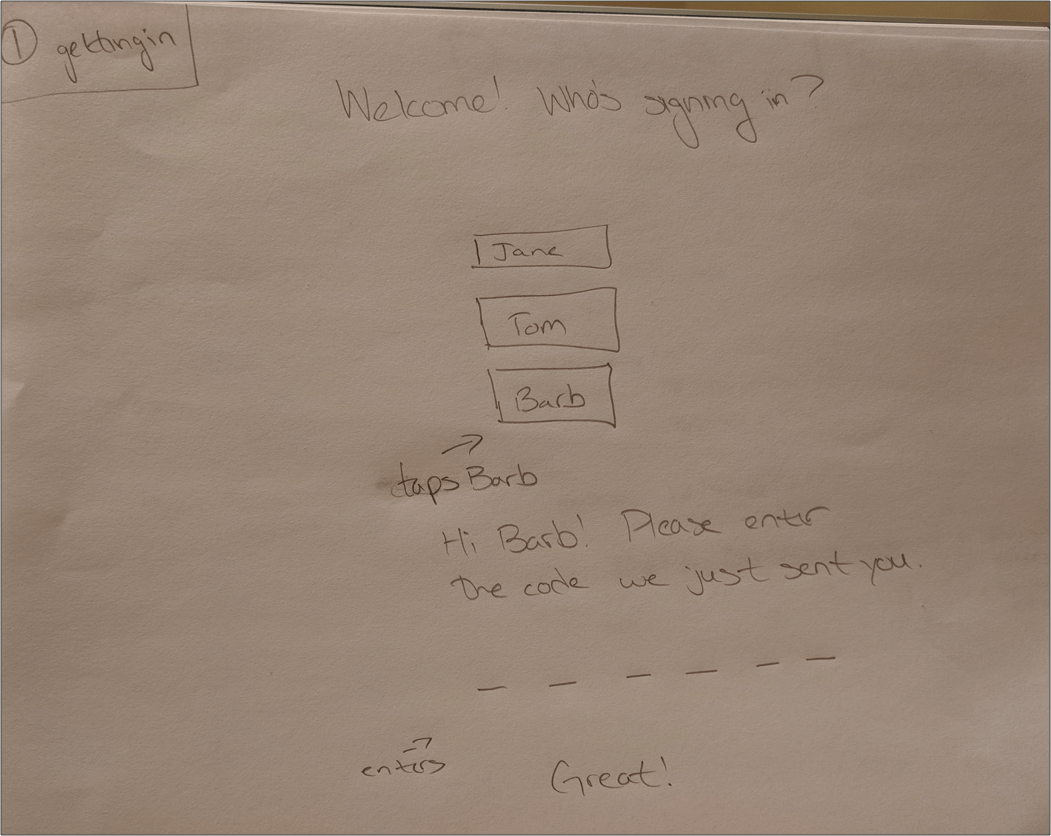 ① getting in
Welcome! Who's signing in?
Jane
Tom
Barb
→
taps Barb
Hi Barb! Please enter
the code we just sent you.
_ _ _ _ _ _
→
enters
Great!